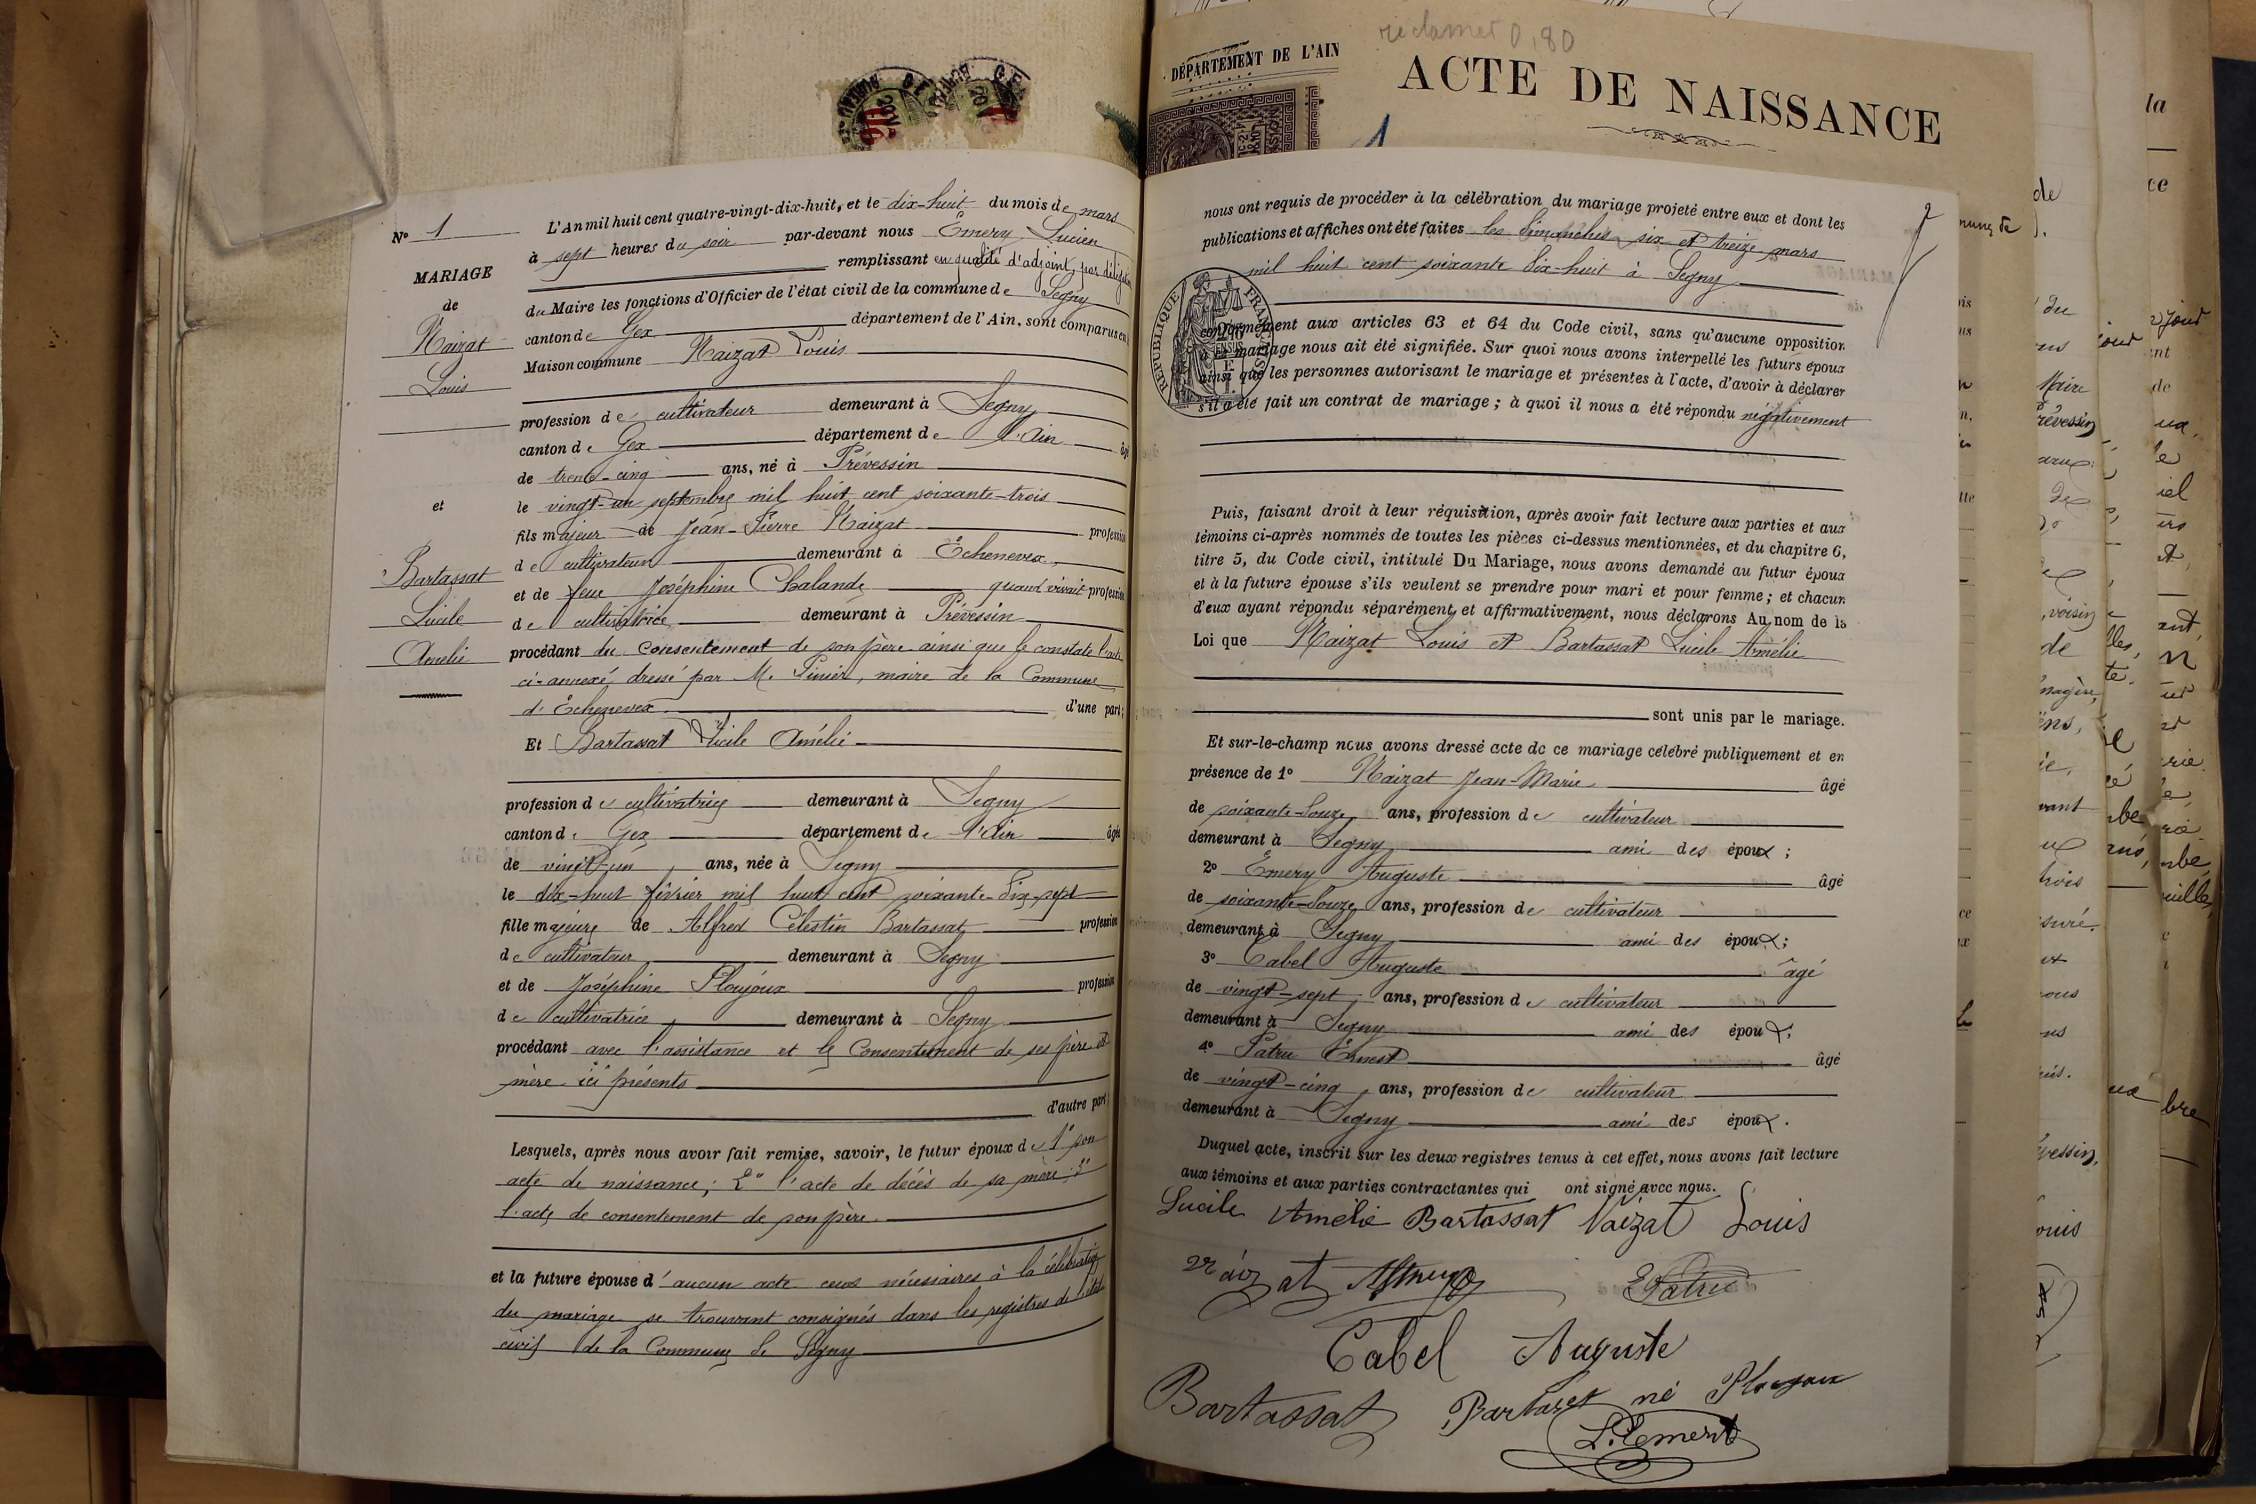 N° 1
MARIAGE
de
Naizat
Louis
et
Bartassat
Lucile
Amélie
L'An mil huit cent quatre-vingt-dix-huit, et le dix-huit du mois de mars
à sept heures du soir par-devant nous Émery Lucien
remplissant en qualité d'adjoint, par délégation
du Maire les fonctions d'Officier de l'état civil de la commune de Segny
canton de Gex département de l'Ain, sont comparus en
Maison commune Naizat Louis
profession de cultivateur demeurant à Segny
canton de Gex département de l'Ain âgé
de trente-cinq ans, né à Prévessin
le vingt-un septembre mil huit cent soixante-trois
fils majeur de Jean-Pierre Naizat profession
de cultivateur demeurant à Échenevex
et de feue Joséphine Chalande quand vivait profession
de cultivatrice demeurant à Prévessin
procédant du consentement de son père ainsi que le constate l'acte
ci-annexé dressé par M. Pinier, maire de la Commune
d'Échenevex d'une part;
Et Bartassat Lucile Amélie
profession de cultivatrice demeurant à Segny
canton de Gex département de l'Ain âgée
de vingt-un ans, née à Segny
le dix-huit février mil huit cent soixante-dix-sept
fille majeure de Alfred Célestin Bartassat profession
de cultivateur demeurant à Segny
et de Joséphine Ploujoux profession
de cultivatrice demeurant à Segny
procédant avec l'assistance et le Consentement de ses père et
mère ici présents
d'autre part
Lesquels, après nous avoir fait remise, savoir, le futur époux de 1° son
acte de naissance; 2° l'acte de décès de sa mère; 3°
l'acte de consentement de son père.
et la future épouse d'aucun acte ceux nécessaires à la célébration
du mariage se trouvant consignés dans les registres de l'état
civil de la Commune de Segny
réclamer 0,80
DÉPARTEMENT DE L'AIN
ACTE DE NAISSANCE
nous ont requis de procéder à la célébration du mariage projeté entre eux et dont les
publications et affiches ont été faites les dimanches six et treize mars
mil huit cent soixante dix-huit à Segny
RÉPUBLIQUE FRANÇAISE
conformément aux articles 63 et 64 du Code civil, sans qu'aucune opposition
à ce mariage nous ait été signifiée. Sur quoi nous avons interpellé les futurs époux
ainsi que les personnes autorisant le mariage et présentes à l'acte, d'avoir à déclarer
s'il a été fait un contrat de mariage; à quoi il nous a été répondu négativement
Puis, faisant droit à leur réquisition, après avoir fait lecture aux parties et aux
témoins ci-après nommés de toutes les pièces ci-dessus mentionnées, et du chapitre 6,
titre 5, du Code civil, intitulé Du Mariage, nous avons demandé au futur époux
et à la future épouse s'ils veulent se prendre pour mari et pour femme; et chacun
d'eux ayant répondu séparément et affirmativement, nous déclarons Au nom de la
Loi que Naizat Louis et Bartassat Lucile Amélie
sont unis par le mariage.
Et sur-le-champ nous avons dressé acte de ce mariage célébré publiquement et en
présence de 1° Naizat Jean-Marie âgé
de soixante-douze ans, profession de cultivateur
demeurant à Segny ami des époux;
2° Émery Auguste âgé
de soixante-douze ans, profession de cultivateur
demeurant à Segny ami des époux;
3° Cabel Auguste âgé
de vingt-sept ans, profession de cultivateur
demeurant à Segny ami des époux;
4° Patru Ernest âgé
de vingt-cinq ans, profession de cultivateur
demeurant à Segny ami des époux.
Duquel acte, inscrit sur les deux registres tenus à cet effet, nous avons fait lecture
aux témoins et aux parties contractantes qui ont signé avec nous.
Lucile Amélie Bartassat Naizat Louis
Naizat E Patru
Cabel Auguste
Bartassat Bartasset né Ploujoux
L. Emery